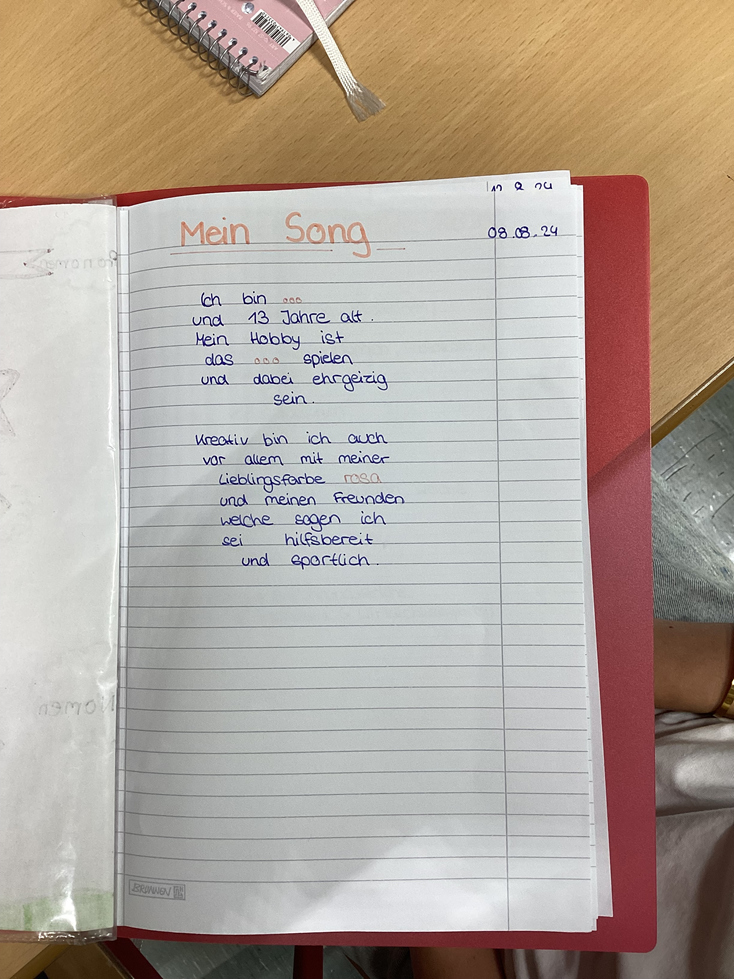 08.08.24
Mein Song
Ich bin ...
und 13 Jahre alt.
Mein Hobby ist
das ... spielen
und dabei ehrgeizig
sein.
Kreativ bin ich auch
vor allem mit meiner
Lieblingsfarbe rosa
und meinen Freunden
welche sagen ich
sei hilfsbereit
und sportlich.
BRUNNEN
Nomen